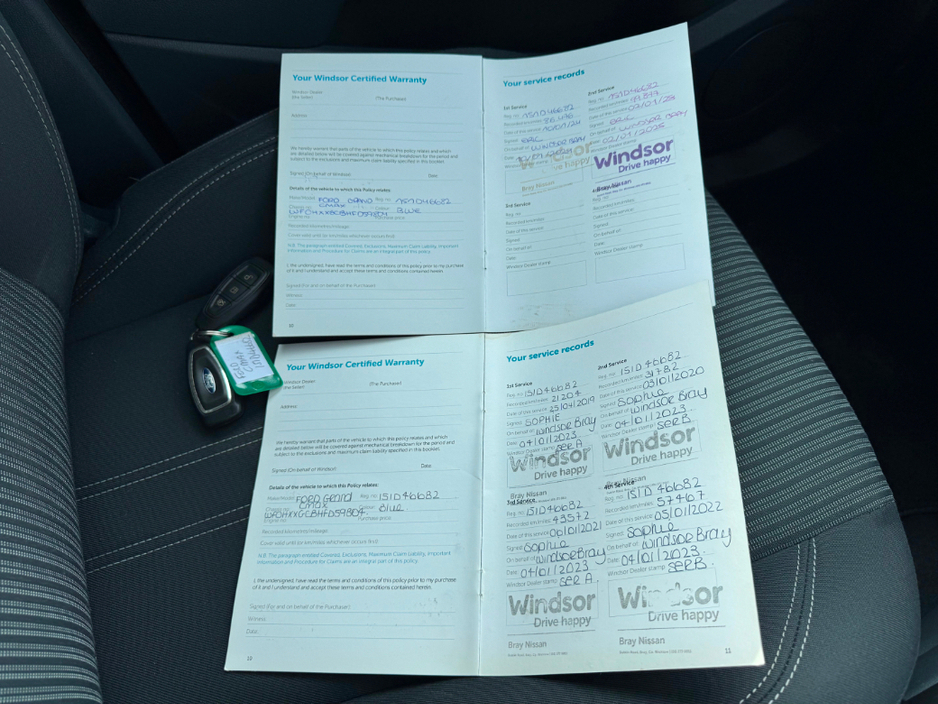 Your Windsor Certified Warranty
Windsor Dealer
(the Seller)
(The Purchaser)
Address
We hereby warrant that parts of the vehicle to which this policy relates and which
are detailed below will be covered against mechanical breakdown for the period and
subject to the exclusions and maximum claim liability specified in this booklet.
Signed (On behalf of Windsor)
Date
Details of the vehicle to which this Policy relates:
Make/Model FORD GRAND Reg no 151D46682
CMAX
BLUE
Purchase price
Recorded kms/mileage
Cover valid until (or km/miles whichever occurs first)
N.B. The paragraph entitled Covered, Exclusions, Maximum Claim Liability, Important
Information and Procedure for Claims are an integral part of this policy.
I, the undersigned, have read the terms and conditions of this policy prior to my purchase
of it and I understand and accept these terms and conditions contained herein.
Signed (For and on behalf of the Purchaser)
Witness
Date
Your service records
1st Service
Reg. no 151D46682
Recorded km/miles
Date of this service 10/01/24
Signed ERIC
On behalf of WINDSOR BRAY
Date
Bray Nissan
2nd Service
Reg. no 151D46682
Recorded km/miles
Date of this service
Signed ERIC
On behalf of WINDSOR BRAY
Date 02/01/2025
Windsor
Drive happy
Bray Nissan
3rd Service
Reg. no
Recorded km/miles
Date of this service
Signed
On behalf of
Date
Windsor Dealer stamp
Reg. no
Recorded km/miles
Date of this service
Signed
On behalf of
Date
Windsor Dealer stamp
Ford
FORD
CMAX
Your Windsor Certified Warranty
Windsor Dealer
(the Seller)
(The Purchaser)
Address
We hereby warrant that parts of the vehicle to which this policy relates and which
are detailed below will be covered against mechanical breakdown for the period and
subject to the exclusions and maximum claim liability specified in this booklet.
Signed (On behalf of Windsor)
Date
Details of the vehicle to which this Policy relates:
Make/Model FORD Grand Reg no 151D46682
CMAX
Blue
Purchase price
Recorded kms/mileage
Cover valid until (or km/miles whichever occurs first)
N.B. The paragraph entitled Covered, Exclusions, Maximum Claim Liability, Important
Information and Procedure for Claims are an integral part of this policy.
I, the undersigned, have read the terms and conditions of this policy prior to my purchase
of it and I understand and accept these terms and conditions contained herein.
Signed (For and on behalf of the Purchaser)
Witness
Date
10
Your service records
1st Service
Reg. no 151D46682
Recorded km/miles 21204
Date of this service 25/04/2019
Signed SOPHIE
On behalf of Windsor Bray
Date 04/01/2023
Windsor Dealer stamp See A.
Windsor
Drive happy
Bray Nissan
2nd Service
Reg. no 151D46682
Recorded km/miles 31782
Date of this service 03/01/2020
Signed Sophie
On behalf of Windsor Bray
Date 04/01/2023
Windsor Dealer stamp See B.
Windsor
Drive happy
3rd Service
Reg. no 151D46682
Recorded km/miles 43572
Date of this service 06/01/2021
Signed Sophie
On behalf of Windsor Bray
Date 04/01/2023
Windsor Dealer stamp See A.
Windsor
Drive happy
Bray Nissan
4th Service
Reg. no 151D46682
Recorded km/miles 57467
Date of this service 05/01/2022
Signed Sophie
On behalf of Windsor Bray
Date 04/01/2023
Windsor Dealer stamp See B.
Windsor
Drive happy
Bray Nissan
11